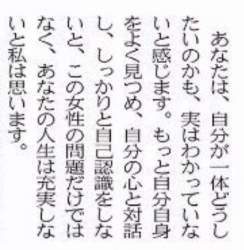 あなたは、自分が一体どうし
たいのかも、実はわかっていな
いと感じます。もっと自分自身
をよく見つめ、自分の心と対話
し、しっかりと自己認識をしな
いと、この女性の問題だけでは
なく、あなたの人生は充実しな
いと私は思います。